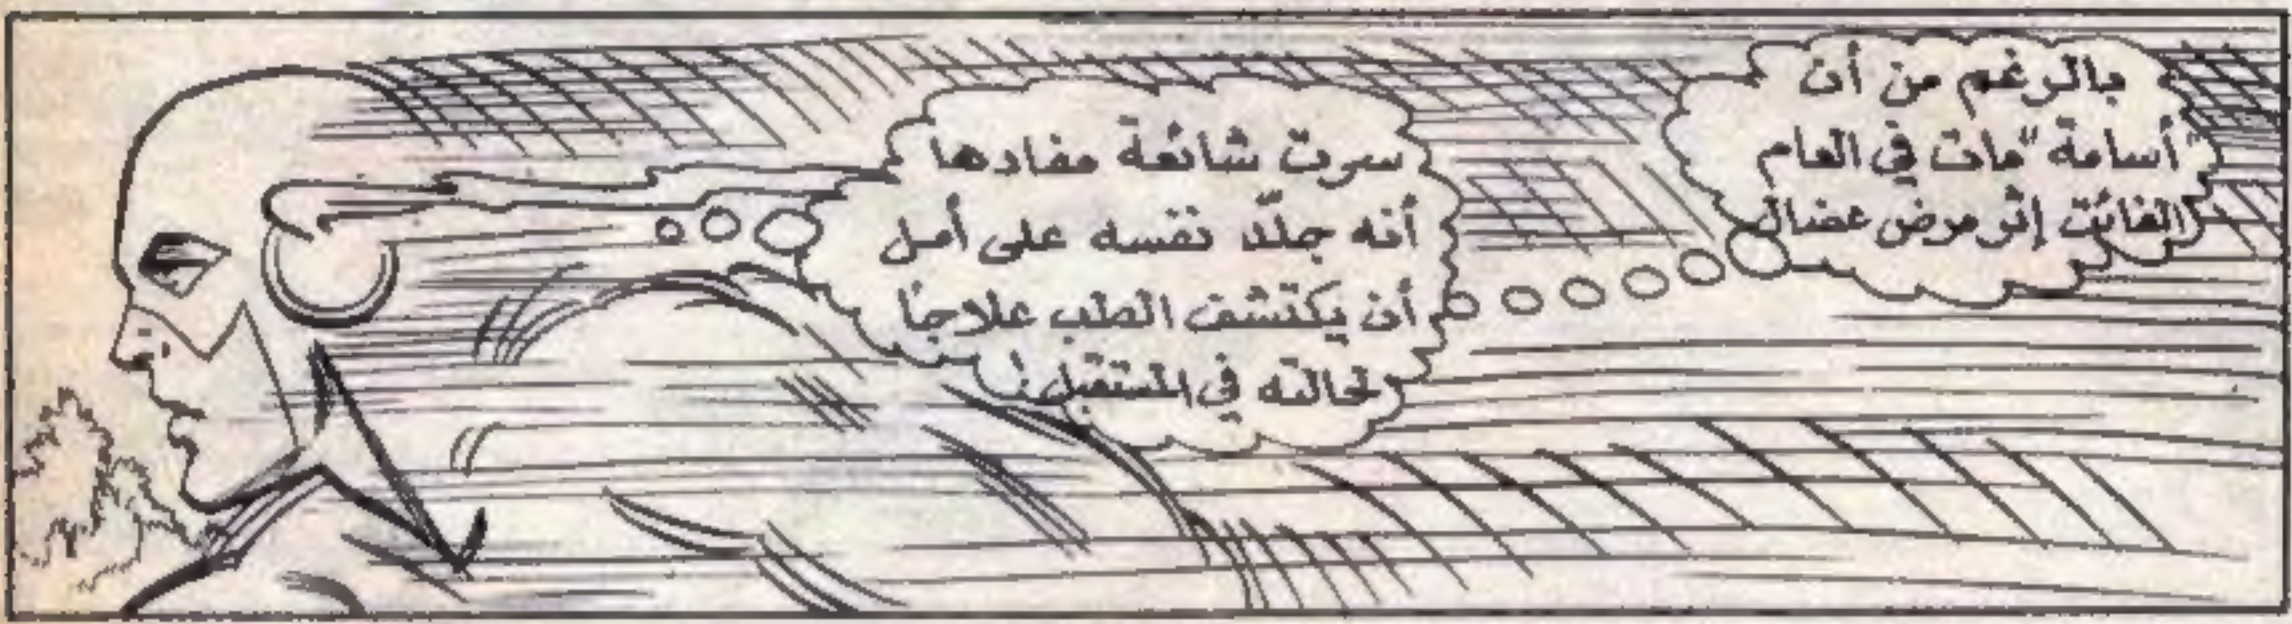 بالرغم من أن
"أسامة" مات في العام
الفائت إثر مرض عضال
سرت شائعة مفادها
أنه جلّد نفسه على أمل
أن يكتشف الطب علاجًا
لحالته في المستقبل !